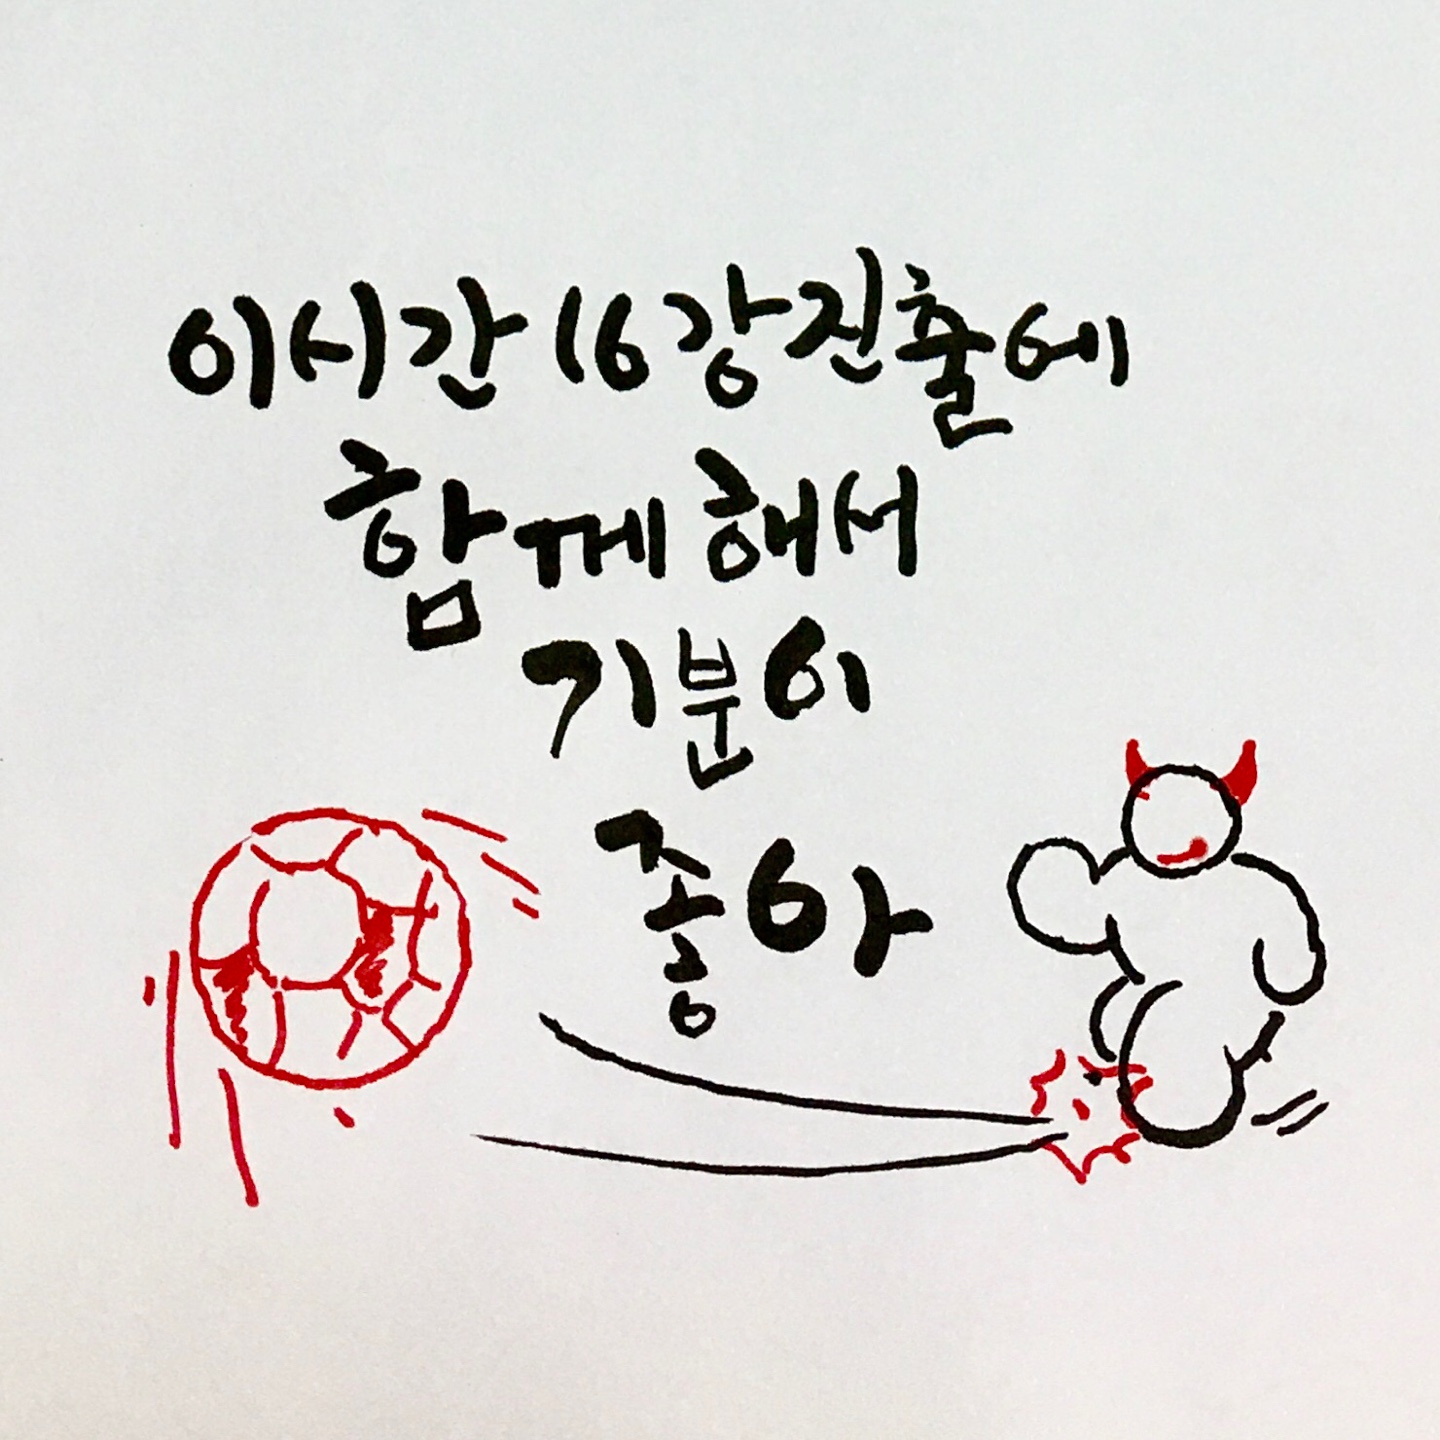 이시간 16강진출에
함께해서
기분이
좋아